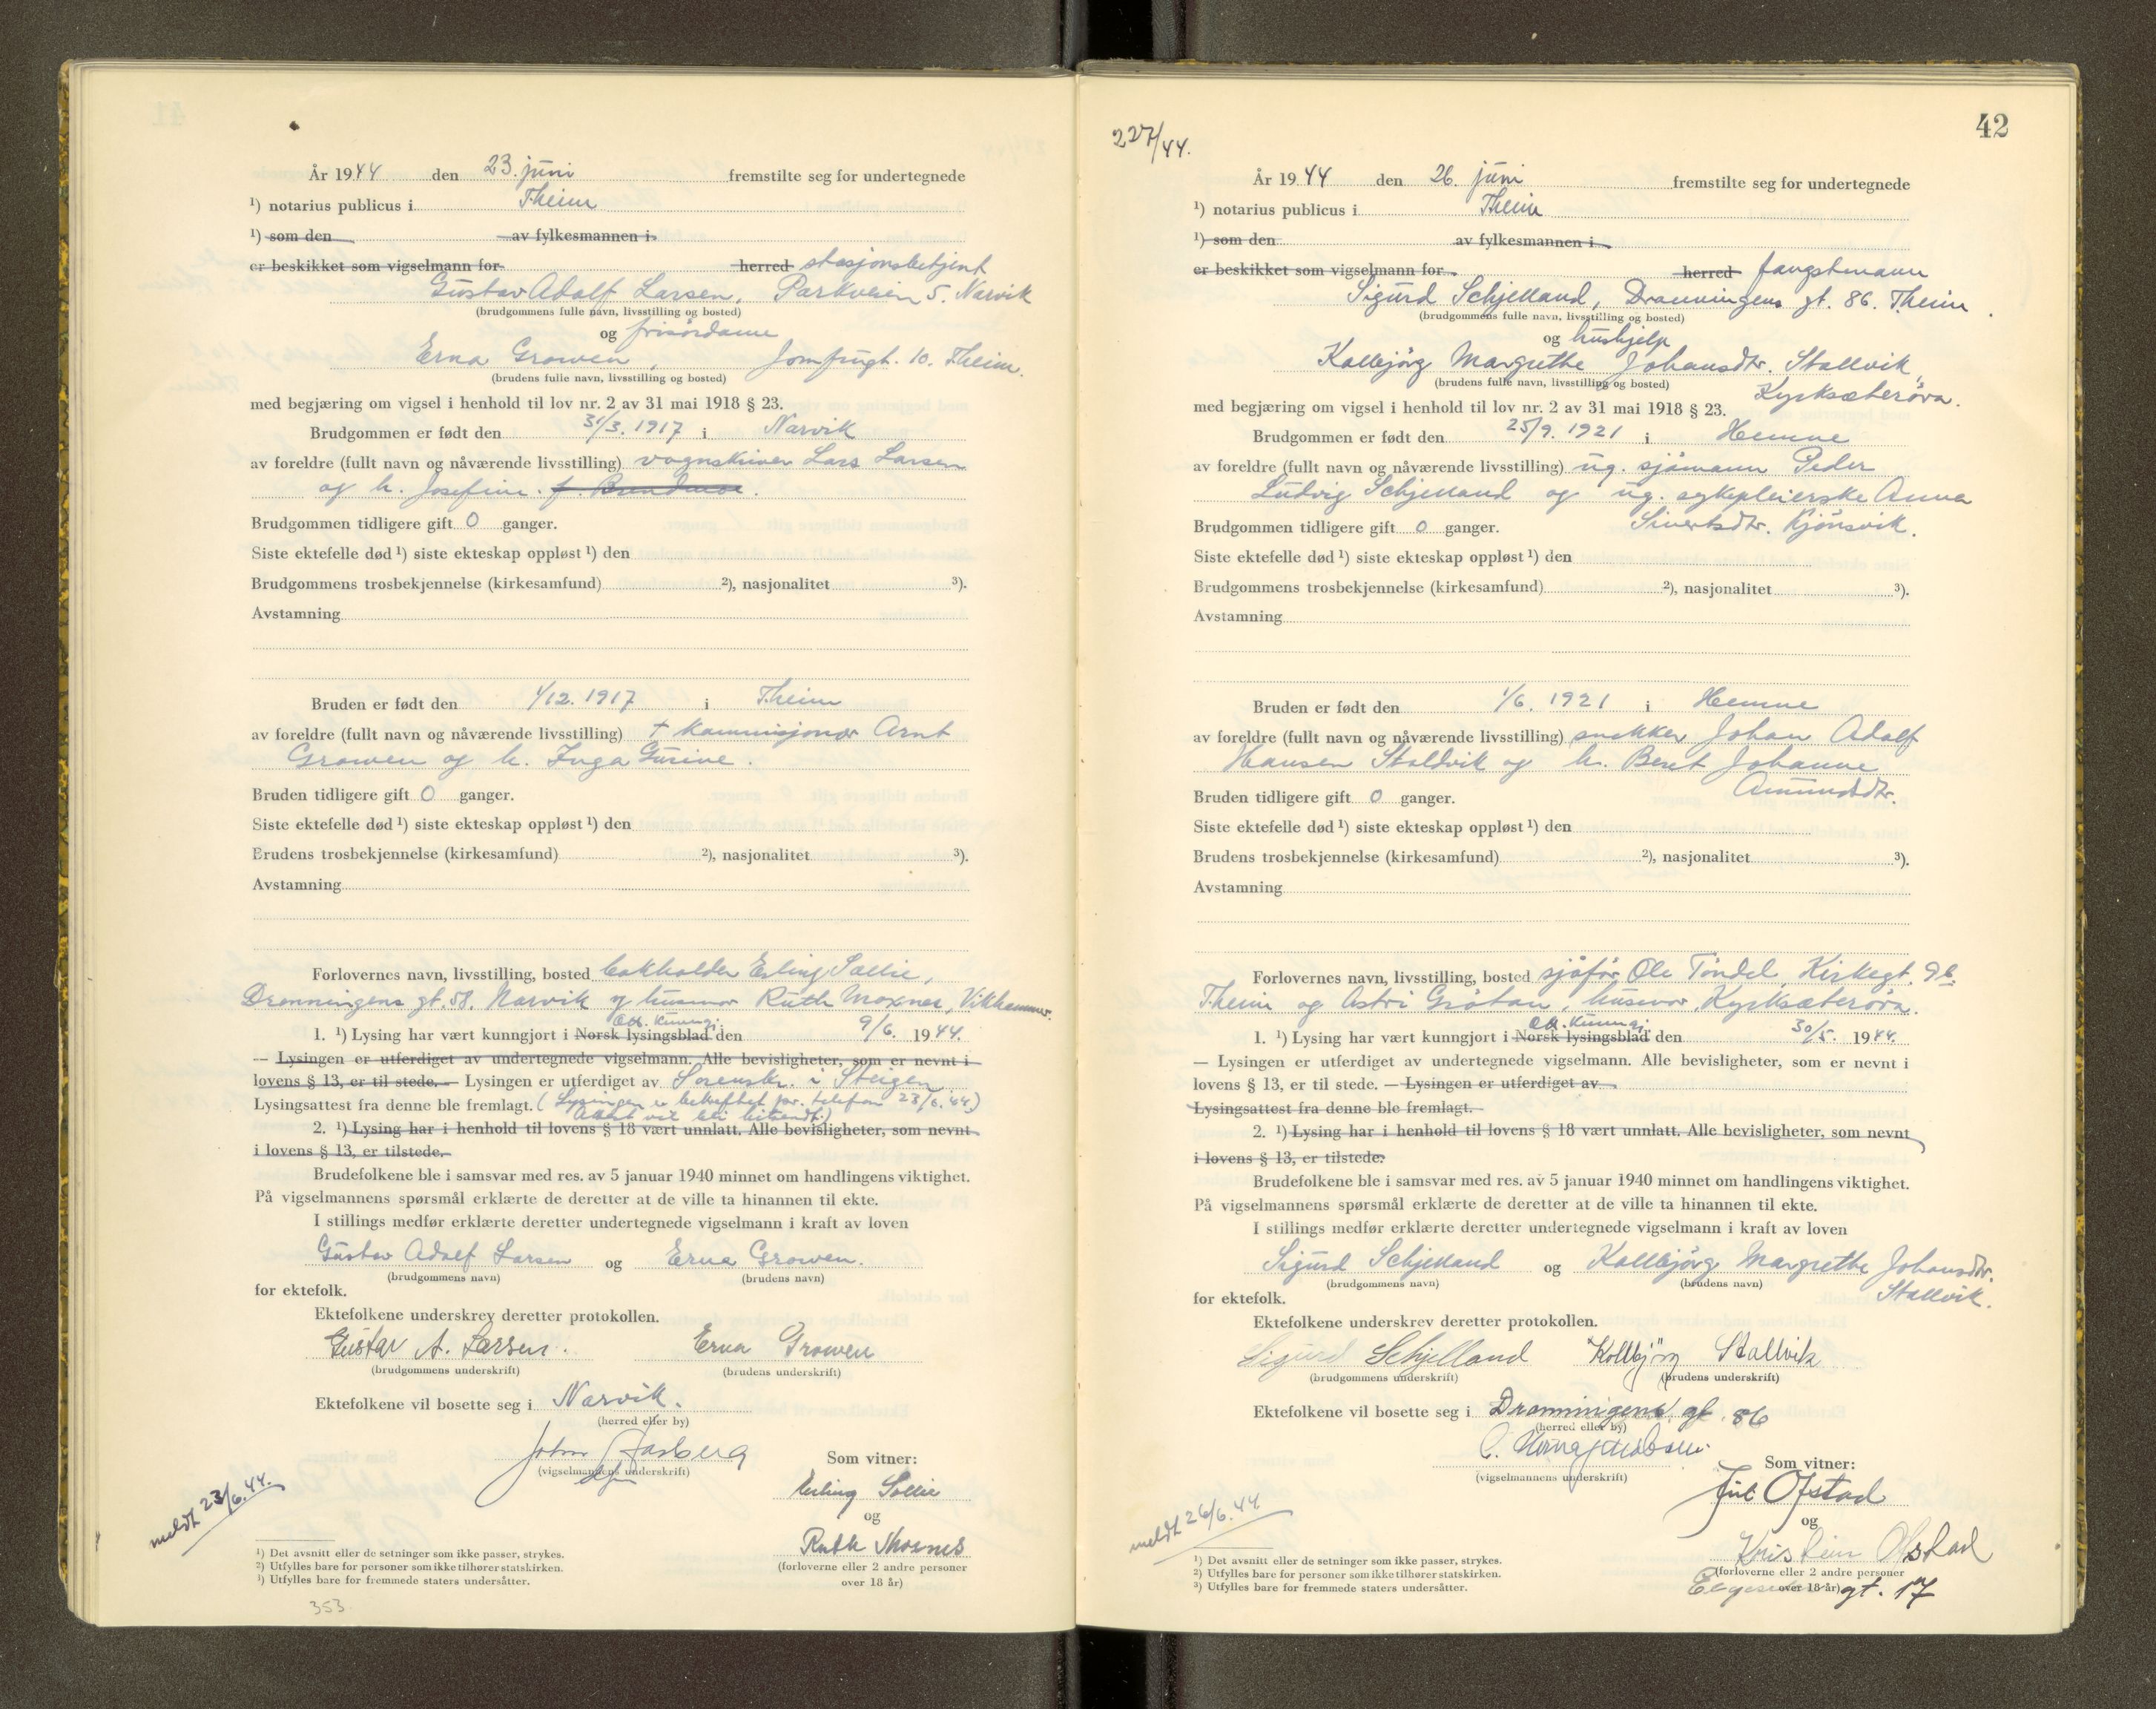 År 1944 den 23. juni fremstilte seg for undertegnede
¹) notarius publicus i Theim
¹) som den av fylkesmannen i
er beskikket som vigselmann for herred stasjonsbetjent
Gustav Adolf Larsen, Parkveien 5. Narvik
(brudgommens fulle navn, livsstilling og bosted)
og frisördame
Erna Growen, Jomfrugt. 10. Theim.
(brudens fulle navn, livsstilling og bosted)
med begjæring om vigsel i henhold til lov nr. 2 av 31 mai 1918 § 23.
Brudgommen er født den 31/3. 1917 i Narvik
av foreldre (fullt navn og nåværende livsstilling) vognskriver Lars Larsen
og h. Josefine.
Brudgommen tidligere gift 0 ganger.
Siste ektefelle død ¹) siste ekteskap oppløst ¹) den
Brudgommens trosbekjennelse (kirkesamfund) ²), nasjonalitet ³).
Avstamning
Bruden er født den 1/12. 1917 i Theim
av foreldre (fullt navn og nåværende livsstilling) † kommisjonær Arnt
Growen og h. Inga Gurine.
Bruden tidligere gift 0 ganger.
Siste ektefelle død ¹) siste ekteskap oppløst ¹) den
Brudens trosbekjennelse (kirkesamfund) ²), nasjonalitet ³).
Avstamning
Forlovernes navn, livsstilling, bosted bokholder Erling Sollie,
Dronningens gt. 58. Narvik og husmor Ruth Moxnes, Vikhammer.
Off. kunngj.
1. ¹) Lysing har vært kunngjort i Norsk lysingsblad den 9/6. 1944.
— Lysingen er utferdiget av undertegnede vigselmann. Alle bevisligheter, som er nevnt i
lovens § 13, er til stede. — Lysingen er utferdiget av Sorenskr. i Steigen
Lysingsattest fra denne ble fremlagt. (Lysingen er bekreftet pr. telefon 23/6.44.)
Attest vil bli
2. ¹) Lysing har i henhold til lovens § 18 vært unnlatt. Alle bevisligheter, som nevnt
i lovens § 13, er tilstede.
Brudefolkene ble i samsvar med res. av 5 januar 1940 minnet om handlingens viktighet.
På vigselmannens spørsmål erklærte de deretter at de ville ta hinannen til ekte.
I stillings medfør erklærte deretter undertegnede vigselmann i kraft av loven
Gustav Adolf Larsen og Erna Growen.
(brudgommens navn) (brudens navn)
for ektefolk.
Ektefolkene underskrev deretter protokollen.
Gustav A. Larsen. Erna Growen
(brudgommens underskrift) (brudens underskrift)
Ektefolkene vil bosette seg i Narvik.
(herred eller by)
John Aasberg
(vigselmannens underskrift)
Som vitner:
Erling Sollie
og
Ruth Moxnes
(forloverne eller 2 andre personer
over 18 år)
meldt 23/6.44.
¹) Det avsnitt eller de setninger som ikke passer, strykes.
²) Utfylles bare for personer som ikke tilhører statskirken.
³) Utfylles bare for fremmede staters undersåtter.
353
42
227/44.
År 1944 den 26. juni fremstilte seg for undertegnede
¹) notarius publicus i Theim
¹) som den av fylkesmannen i
er beskikket som vigselmann for herred fangstmann
Sigurd Schjelland, Dronningens gt. 86. Theim.
(brudgommens fulle navn, livsstilling og bosted)
og hushjelp
Kollbjörg Margrethe Johansdtr. Stallvik,
(brudens fulle navn, livsstilling og bosted)
Kyrksæteröra.
med begjæring om vigsel i henhold til lov nr. 2 av 31 mai 1918 § 23.
Brudgommen er født den 25/9. 1921 i Hemne
av foreldre (fullt navn og nåværende livsstilling) ug. sjömann Peder
Ludvig Schjelland og ug. sykepleierske Anna
Sivertsdtr. Kjönsvik.
Brudgommen tidligere gift 0 ganger.
Siste ektefelle død ¹) siste ekteskap oppløst ¹) den
Brudgommens trosbekjennelse (kirkesamfund) ²), nasjonalitet ³).
Avstamning
Bruden er født den 1/6. 1921 i Hemne
av foreldre (fullt navn og nåværende livsstilling) snekker Johan Adolf
Hansen Stallvik og h. Beret Johanne
Amundsdtr.
Bruden tidligere gift 0 ganger.
Siste ektefelle død ¹) siste ekteskap oppløst ¹) den
Brudens trosbekjennelse (kirkesamfund) ²), nasjonalitet ³).
Avstamning
Forlovernes navn, livsstilling, bosted sjåför Ole Töndel, Kirkegt. 9b.
Theim og Astri Grötan, husmor, Kyrksæteröra.
Off. kunngj.
1. ¹) Lysing har vært kunngjort i Norsk lysingsblad den 30/5. 1944.
— Lysingen er utferdiget av undertegnede vigselmann. Alle bevisligheter, som er nevnt i
lovens § 13, er til stede. — Lysingen er utferdiget av
Lysingsattest fra denne ble fremlagt.
2. ¹) Lysing har i henhold til lovens § 18 vært unnlatt. Alle bevisligheter, som nevnt
i lovens § 13, er tilstede.
Brudefolkene ble i samsvar med res. av 5 januar 1940 minnet om handlingens viktighet.
På vigselmannens spørsmål erklærte de deretter at de ville ta hinannen til ekte.
I stillings medfør erklærte deretter undertegnede vigselmann i kraft av loven
Sigurd Schjelland og Kollbjörg Margrethe Johansdtr.
(brudgommens navn) (brudens navn) Stallvik.
for ektefolk.
Ektefolkene underskrev deretter protokollen.
Sigurd Schjelland Kollbjörg Stallvik
(brudgommens underskrift) (brudens underskrift)
Ektefolkene vil bosette seg i Dronningens gt. 86
(herred eller by)
(vigselmannens underskrift)
Som vitner:
Jul Ofstad
og
Kristein Ofstad
(forloverne eller 2 andre personer
over 18 år)
gt. 17
meldt 26/6.44
¹) Det avsnitt eller de setninger som ikke passer, strykes.
²) Utfylles bare for personer som ikke tilhører statskirken.
³) Utfylles bare for fremmede staters undersåtter.